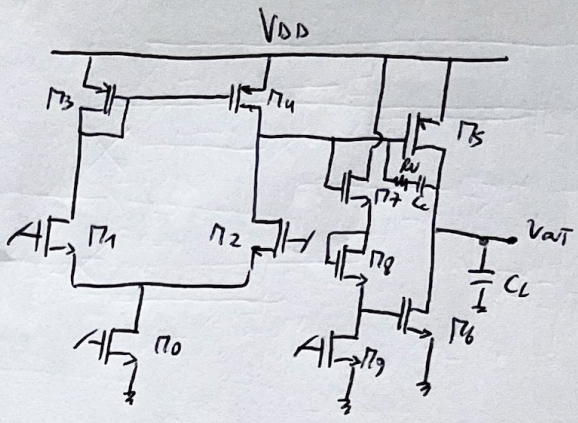 VDD
M3
M4
M5
RN
Cc
M7
M1
M2
VOUT
M8
CL
M6
M0
M9